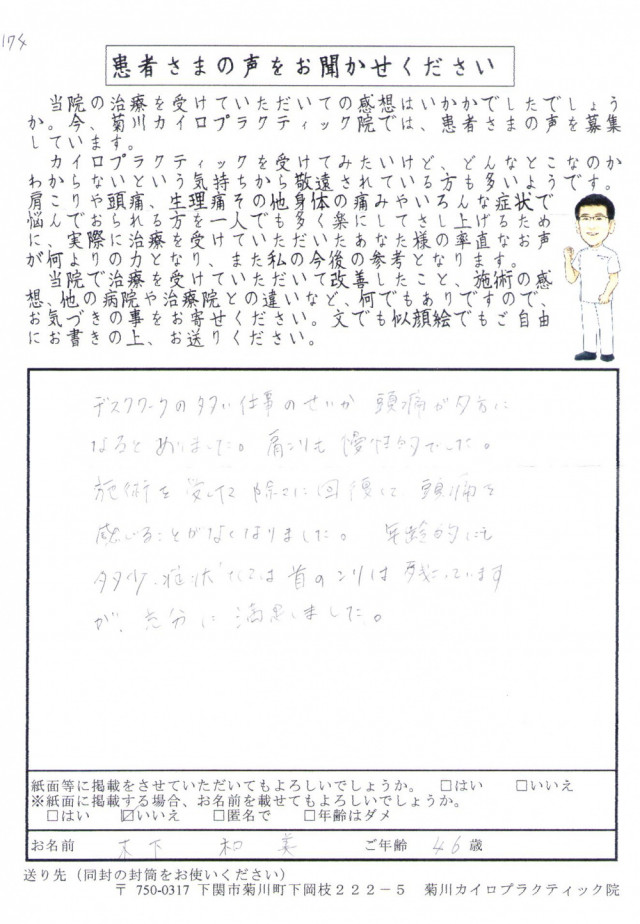 174
患者さまの声をお聞かせください
当院の治療を受けていただいての感想はいかがでしたでしょう
か。今、菊川カイロプラクティック院では、患者さまの声を募集
しています。
カイロプラクティックを受けてみたいけど、どんなとこなのか
わからないという気持ちから敬遠されている方も多いようです。
肩こりや頭痛、生理痛その他身体の痛みやいろんな症状で
悩んでおられる方を一人でも多く楽にしてさし上げるため
に、実際に治療を受けていただいたあなた様の率直なお声
が何よりの力となり、また私の今後の参考となります。
当院で治療を受けていただいて改善したこと、施術の感
想、他の病院や治療院との違いなど、何でもありですので、
お気づきの事をお寄せください。文でも似顔絵でもご自由
にお書きの上、お送りください。
デスクワークの多い仕事のせいか 頭痛が夕方に
なるとありました。肩こりも慢性的でした。
施術を受けて 除々に回復して 頭痛を
感じることがなくなりました。 年齢的にも
多少、症状 首のこりは 残っています
が、充分に 満足しました。
紙面等に掲載をさせていただいてもよろしいでしょうか。 □はい □いいえ
※紙面に掲載する場合、お名前を載せてもよろしいでしょうか。
□はい ☑いいえ □匿名で □年齢はダメ
お名前 木下 和美 ご年齢 46 歳
送り先（同封の封筒をお使いください）
〒 750-0317 下関市菊川町下岡枝２２２－５ 菊川カイロプラクティック院